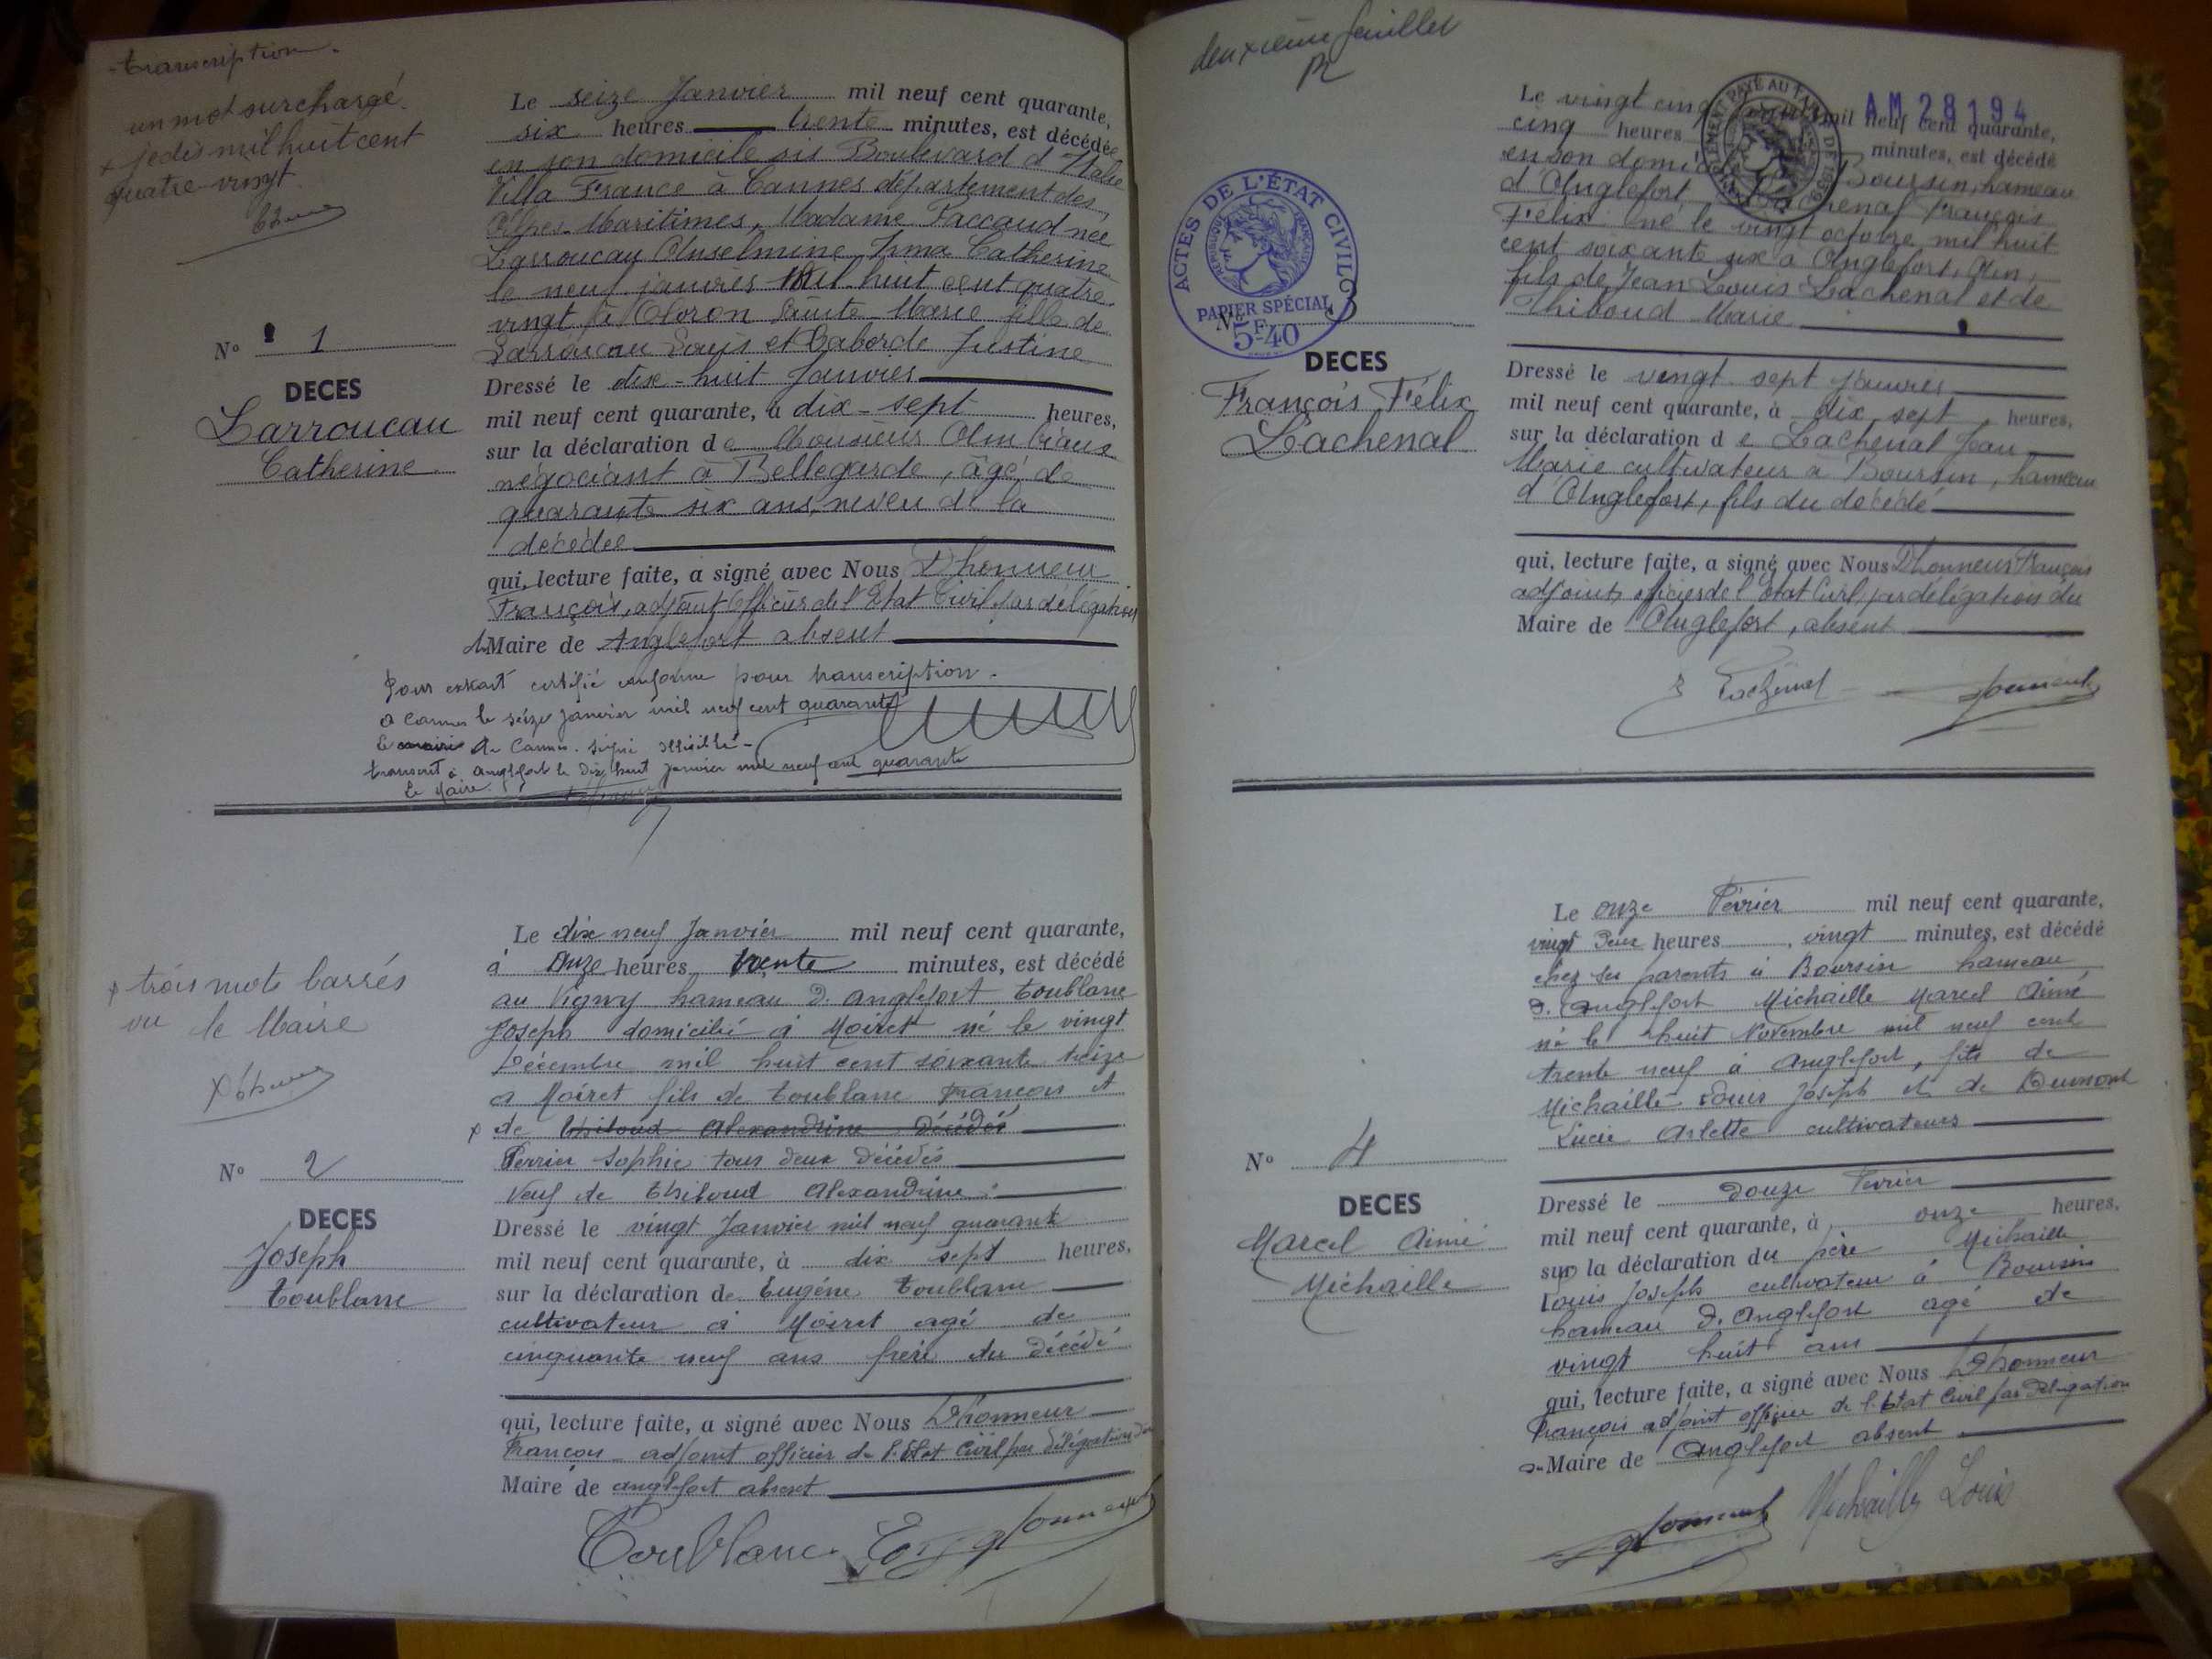 transcription.
un mot surchargé
+ je dis mil huit cent
quatre-vingt
Le seize Janvier mil neuf cent quarante,
six heures trente minutes, est décédée
en son domicile sis Boulevard d'Italie
Villa France à Cannes département des
Alpes-Maritimes, Madame Paccaud née
Larroucau Anselmine Irma Catherine
le neuf janvier mil huit cent quatre
vingt à Oloron Sainte-Marie fille de
Larroucau Louis et Laborde Justine
N° 1
DECES
Larroucau
Catherine
Dressé le dix-huit Janvier
mil neuf cent quarante, à dix-sept heures,
sur la déclaration de Monsieur
négociant à Bellegarde, âgé de
quarante six ans, neveu de la
décédée
qui, lecture faite, a signé avec Nous Dhonneur
François, adjoint officier de l'Etat Civil par délégation
Maire de Anglefort absent
Pour extrait certifié conforme pour transcription.
a Cannes le seize janvier mil neuf cent quarante
Le maire de Cannes. signé illisible -
transcrit à Anglefort le dix huit janvier mil neuf cent quarante
Le Maire.
Le dix neuf Janvier mil neuf cent quarante,
à onze heures trente minutes, est décédé
au Vigny hameau d'anglefort Toublanc
Joseph domicilié à Moiret né le vingt
Décembre mil huit cent soixante treize
a Moiret fils de Toublanc François et
+ de Thiboud Alexandrine décédés
Perrier Sophie tous deux décédés
Veuf de Thiboud Alexandrine.
+ trois mots barrés
vu le Maire
N° 2
DECES
Joseph
Toublanc
Dressé le vingt Janvier mil neuf quarante
mil neuf cent quarante, à dix sept heures,
sur la déclaration de Eugène Toublanc
cultivateur à Moiret agé de
cinquante neuf ans frère du décédé
qui, lecture faite, a signé avec Nous Dhonneur
François adjoint officier de l'Etat Civil par délégation du
Maire de anglefort absent
Toublanc E
deuxième feuillet
AM 28194
Le vingt cinq mil neuf cent quarante,
cinq heures minutes, est décédé
en son Boursin, hameau
d'Anglefort, Lachenal François
Félix né le vingt octobre mil huit
cent soixante six à Anglefort, Ain,
fils de Jean Louis Lachenal et de
Thiboud Marie
ACTES DE L'ÉTAT CIVIL
RÉPUBLIQUE FRANÇAISE
PAPIER SPÉCIAL
5F40
N° 3
DECES
François Félix
Lachenal
Dressé le vingt-sept Janvier
mil neuf cent quarante, à dix sept heures,
sur la déclaration de Lachenal Jean
Marie cultivateur à Boursin, hameau
d'Anglefort, fils du décédé
qui, lecture faite, a signé avec Nous Dhonneur François
adjoint, officier de l'Etat Civil, par délégation du
Maire de Anglefort, absent
Lachenal
Le onze Février mil neuf cent quarante,
vingt deux heures, vingt minutes, est décédé
chez ses parents à Boursin hameau
d'Anglefort Michaille Marcel Aimé
né le huit Novembre mil neuf cent
trente neuf à Anglefort, fils de
Michaille Louis Joseph et de Dumont
Lucie Arlette cultivateurs
N° 4
DECES
Marcel Aimé
Michaille
Dressé le douze Février
mil neuf cent quarante, à onze heures,
sur la déclaration du père Michaille
Louis Joseph cultivateur à Boursin
hameau d'Anglefort agé de
vingt huit ans
qui, lecture faite, a signé avec Nous Dhonneur
François adjoint officier de l'Etat Civil par délégation
du Maire de Anglefort absent
Michaille Louis